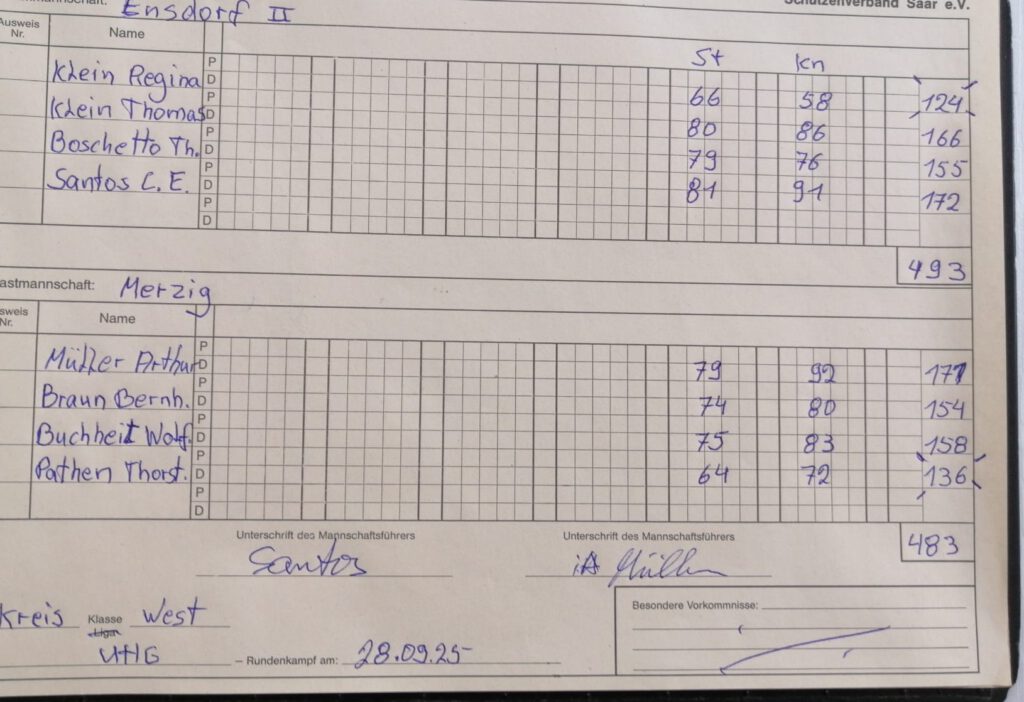 nmannschaft: Ensdorf II Schützenverband Saar e.V.
Ausweis Nr. Name St kn
P
Klein Regina D 66 58 124
P
Klein Thomas D 80 86 166
P
Boschetto Th. D 79 76 155
P
Santos C. E. D 81 91 172
P
D
493
astmannschaft: Merzig
sweis Nr. Name
P
Müller Arthur D 79 92 171
P
Braun Bernh. D 74 80 154
P
Buchheit Wolf. D 75 83 158
P
Pathen Thorst. D 64 72 136
P
D
483
Unterschrift des Mannschaftsführers Unterschrift des Mannschaftsführers
Santos iA Müller
Kreis Klasse West
Liga
– Rundenkampf am: 28.09.25
Besondere Vorkommnisse: